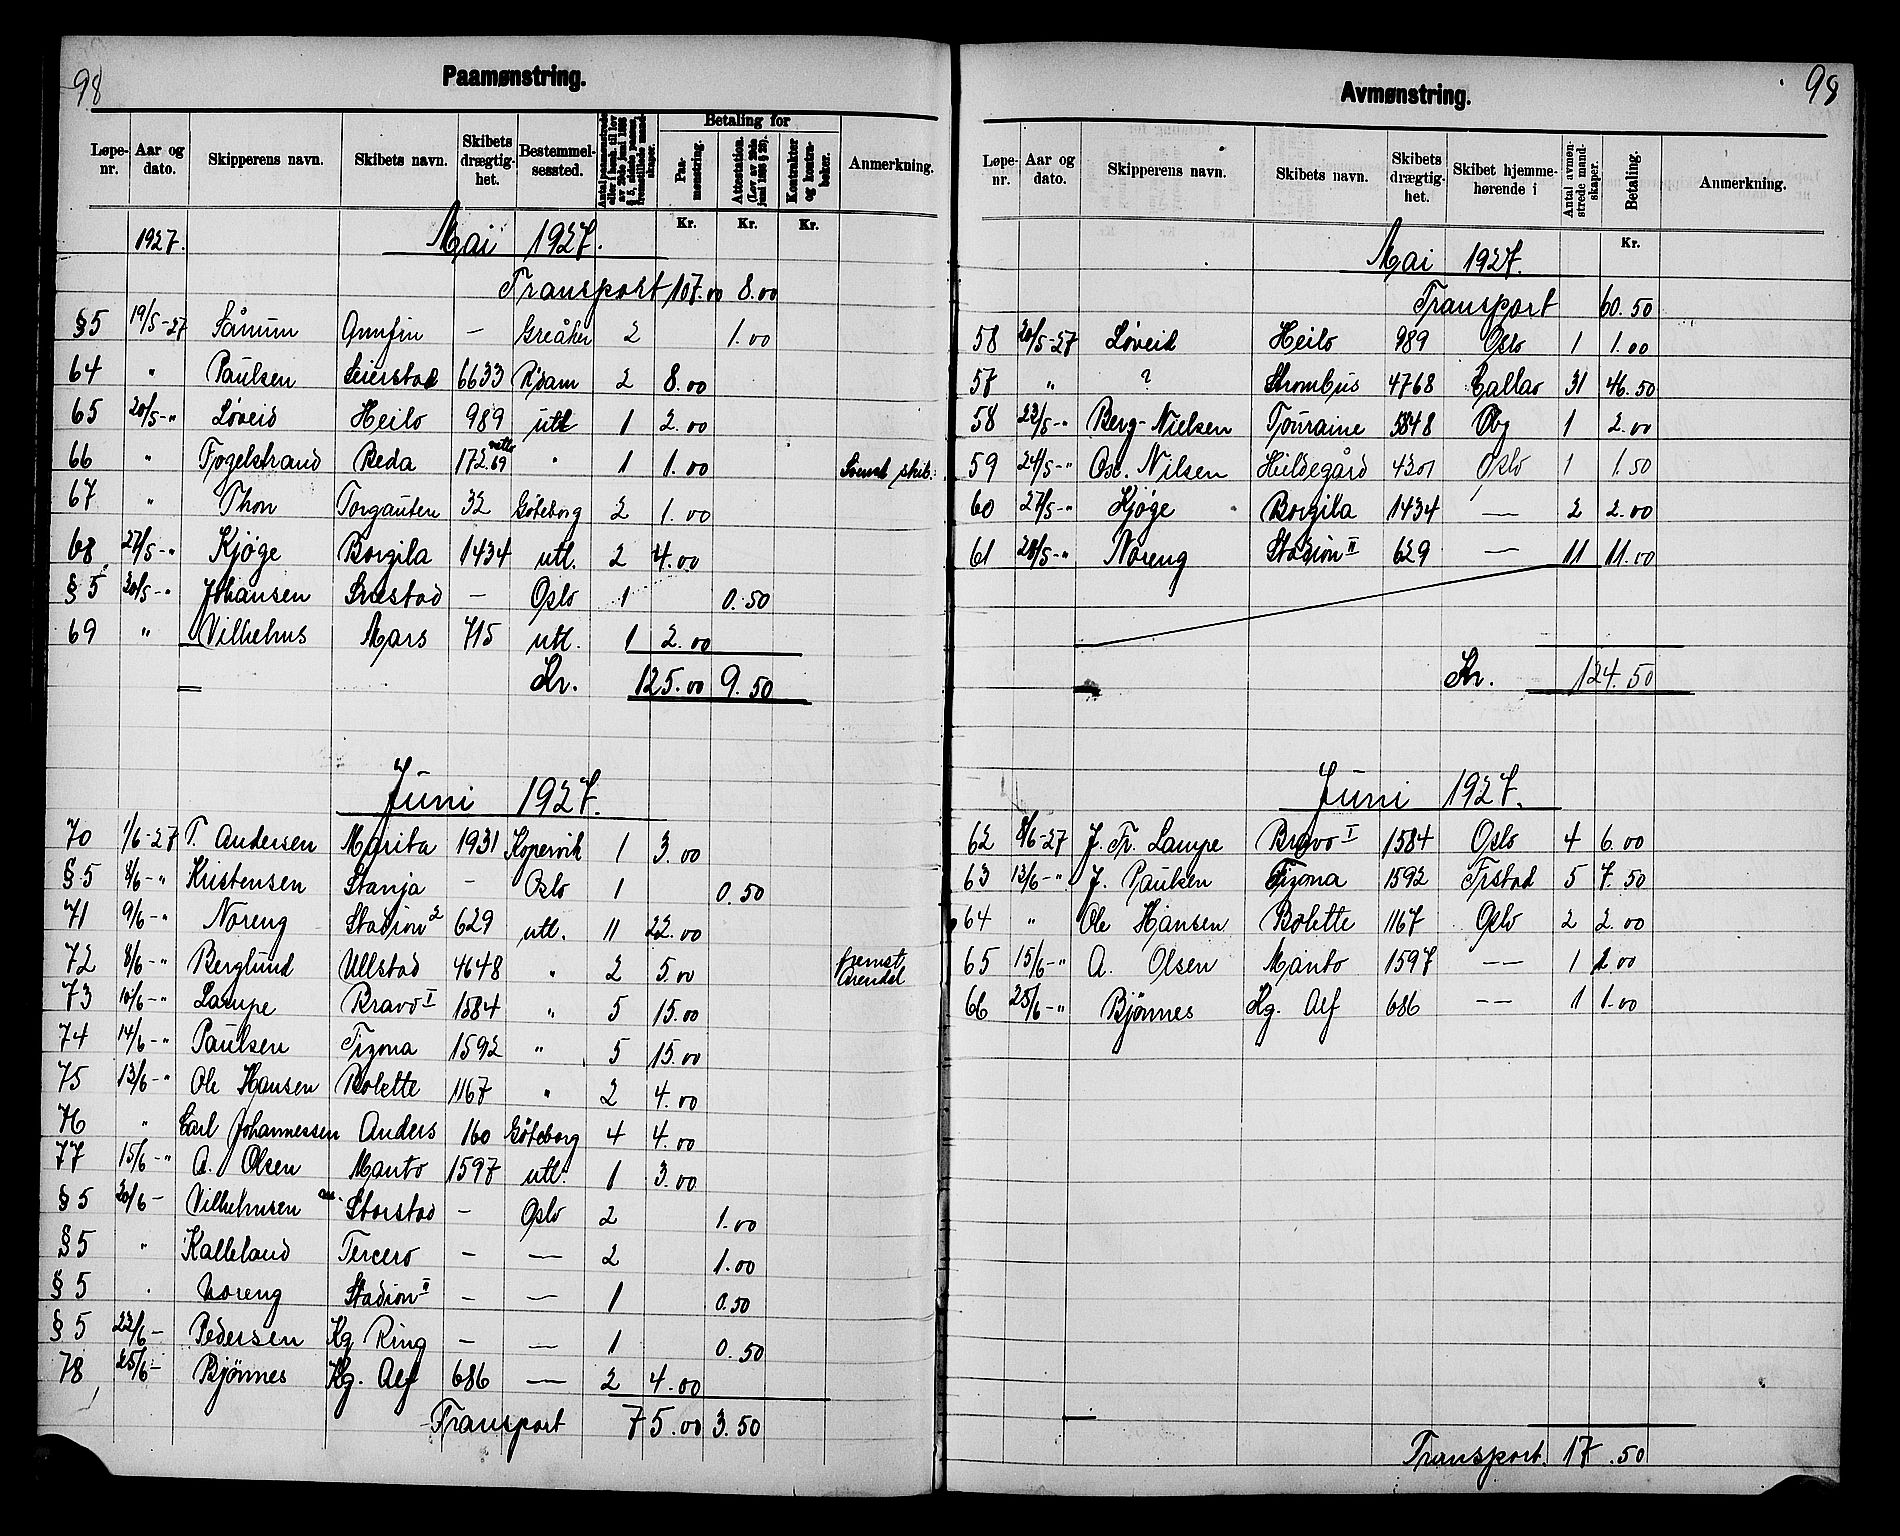 98
Paamønstring.
Løpe-nr. Aar og dato. Skipperens navn. Skibets navn. Skibets drægtig-het. Bestemmel-sessted. Betaling for Paa-mønstring. Attestation. (Lov av 29de juni 1888 § 23). Kontrakter og kontra-bøker. Anmerkning.
Kr. Kr. Kr.
1927. Mai 1927.
Transport 107.00 8.00
§5 19/5-27 Sånum Annfin — Greåker 2 1.00
64 " Paulsen Seierstad 6633 R'dam 2 8.00
65 20/5-" Løveid Heilo 989 utl 1 2.00
66 " Fogelstrand Beda 172.69 netto " 1 1.00 Svensk skib.
67 " Thon Torgauten 32 Göteborg 2 1.00
68 27/5-" Kjøge Borgila 1434 utl. 2 4.00
§5 30/5-" Johansen — Oslo 1 0.50
69 " Vilhelms Mars 715 utl. 1 2.00
Kr. 125.00 9.50
Juni 1927.
70 1/6-27 T. Andersen Marita 1931 Kopervik 1 3.00
§5 8/6-" Kristensen Stanja - Oslo 1 0.50
71 9/6-" Noreng Stadion 2 629 utl. 11 22.00
72 8/6-" Berglund Ullstad 4648 " 2 5.00 hjemst. Arendal
73 10/6-" Lampe Bravo I 1584 " 5 15.00
74 14/6-" Paulsen Tizona 1592 " 5 15.00
75 13/6-" Ole Hansen Bolette 1167 " 2 4.00
76 " Carl Johannessen Anders 160 Göteborg 4 4.00
77 15/6-" A. Olsen Manto 1597 utl. 1 3.00
§5 20/6- Vilhelmsen Storstad - Oslo 2 1.00
§5 " Kalleland Tercero - — 2 1.00
§5 " Noreng Stadion II - — 1 0.50
§5 22/6- Pedersen Kg Ring - — 1 0.50
78 25/6- Bjönnes Kg. Alf 686 — 2 4.00
Transport 75.00 3.50
98
Avmønstring.
Løpe-nr. Aar og dato. Skipperens navn. Skibets navn. Skibets drægtig-het. Skibet hjemme-hørende i Antal avmøn-strede mand-skaper. Betaling. Anmerkning.
Kr.
Mai 1927.
Transport 60.50
58 20/5-27 Løveid Heilo 989 Oslo 1 1.00
57 " ? Strombus 4768 Callao 31 46.50
58 23/5-" Berg-Nielsen Touraine 5848 Tbg 1 2.00
59 24/5-" Osc. Nilsen Hildegård 4301 Oslo 1 1.50
60 27/5-" Kjøge Borgila 1434 — 2 2.00
61 28/5-" Noreng Stadion II 629 — 11 11.00
Kr. 124.50
Juni 1927.
62 8/6-27 J. Fr. Lampe Bravo I 1584 Oslo 4 6.00
63 13/6-" J. Paulsen Tizona 1592 Frstad 5 7.50
64 " Ole Hansen Bolette 1167 Oslo 2 2.00
65 15/6-" A. Olsen Manto 1597 -- 1 2.00
66 25/6-" Bjönnes Kg. Alf 686 -- 1 1.00
Transport. 17.50